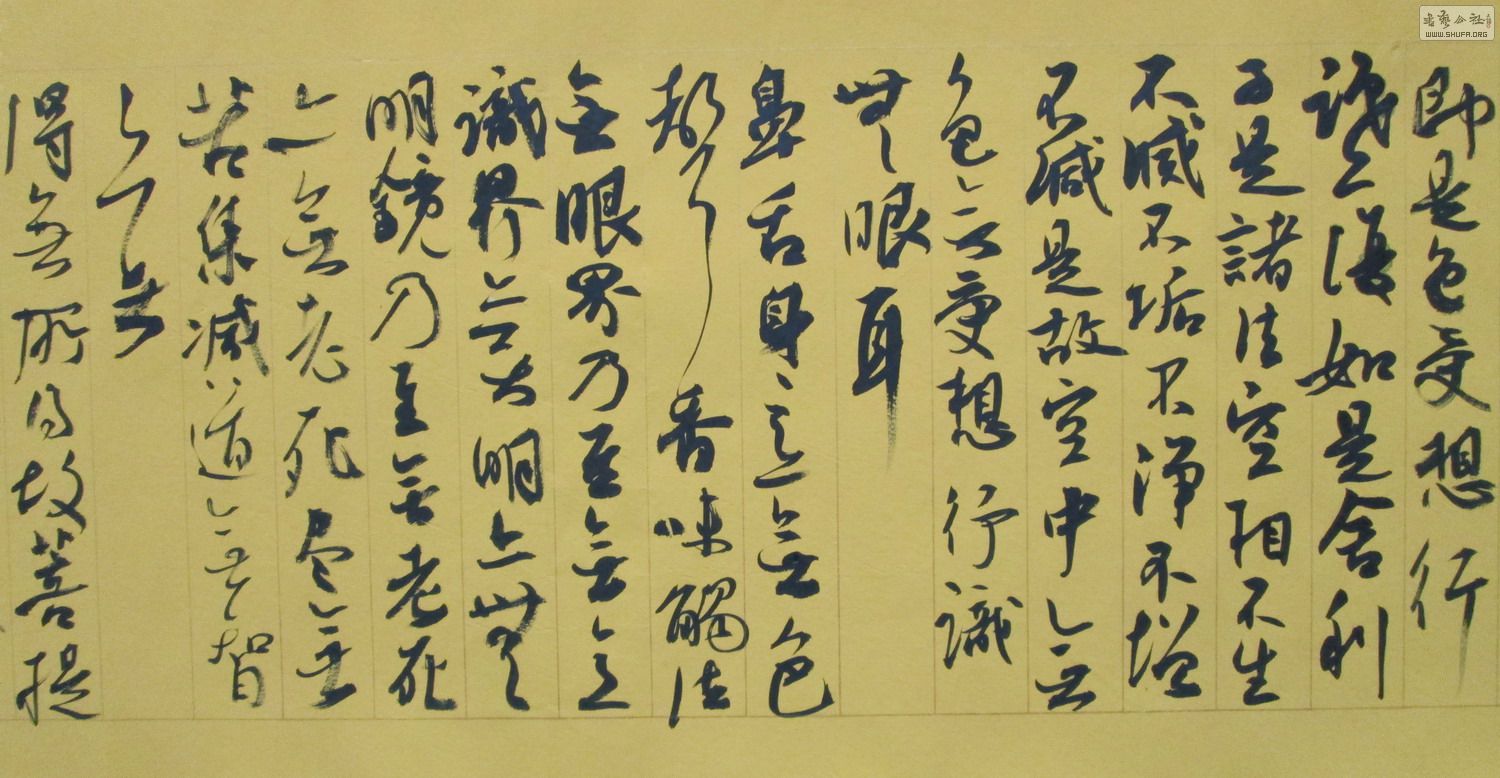 即是色受想行
識亦復如是舍利
子是諸法空相不生
不滅不垢不淨不增
不減是故空中無
色無受想行識
無眼耳
鼻舌身意無色
聲香味觸法
無眼界乃至無意
識界無無明亦無
明鏡乃至無老死
亦無老死盡無
苦集滅道無智
亦無
得無所得故菩提
書藝公社
WWW.SHUFA.ORG